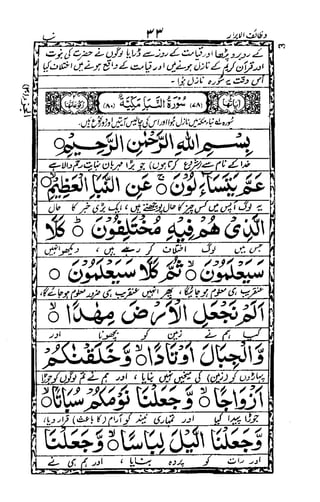 وظائف الابرار ٣٣ نبا
کے روبرو پڑھا اور قیامت کے روز سے ڈرایا تو لوگوں نے حضرت کی نبوت
اور قرآن کریم کے نازل ہونے میں اور قیامت کے واقع ہونے میں اختلاف کیا
اُس وقت یہ سورہ نازل ہوا۔
(٧٨) سُوْرَةُ النَّبَاِ مَكِّيَّةٌ (٨٠)
بِسْمِ اللهِ الرَّحْمٰنِ الرَّحِيْمِ
خدا کے نام سے (شروع کرتا ہوں) جو بڑا مہربان نہایت رحم والا ہے
عَمَّ يَتَسَآءَلُوْنَ عَنِ النَّبَاِ الْعَظِيْمِ
یہ لوگ آپس میں کس چیز کا حال پوچھتے ہیں، ایک بڑی خبر کا حال
الَّذِيْ هُمْ فِيْهِ مُخْتَلِفُوْنَ كَلَّا
جس میں لوگ اختلاف کر رہے ہیں، دیکھو انہیں
سَيَعْلَمُوْنَ ثُمَّ كَلَّا سَيَعْلَمُوْنَ
عنقریب ہی معلوم ہو جائیگا، پھر انہیں عنقریب ہی ضرور معلوم ہو جائے گا
اَلَمْ نَجْعَلِ الْاَرْضَ مِهٰدًا
کیا ہم نے زمین کو بچھونا اور
وَّالْجِبَالَ اَوْتَادًا وَّخَلَقْنٰكُمْ
پہاڑوں کو (زمین) کی میخیں نہیں بنایا، اور ہم نے تم لوگوں کو جوڑا
اَزْوَاجًا وَّجَعَلْنَا نَوْمَكُمْ سُبَاتًا
جوڑا پیدا کیا اور تمہاری نیند کو آرام (کا باعث) قرار دیا،
وَّجَعَلْنَا الَّيْلَ لِبَاسًا وَّجَعَلْنَا
اور رات کو پردہ بنایا، اور ہم ہی نے